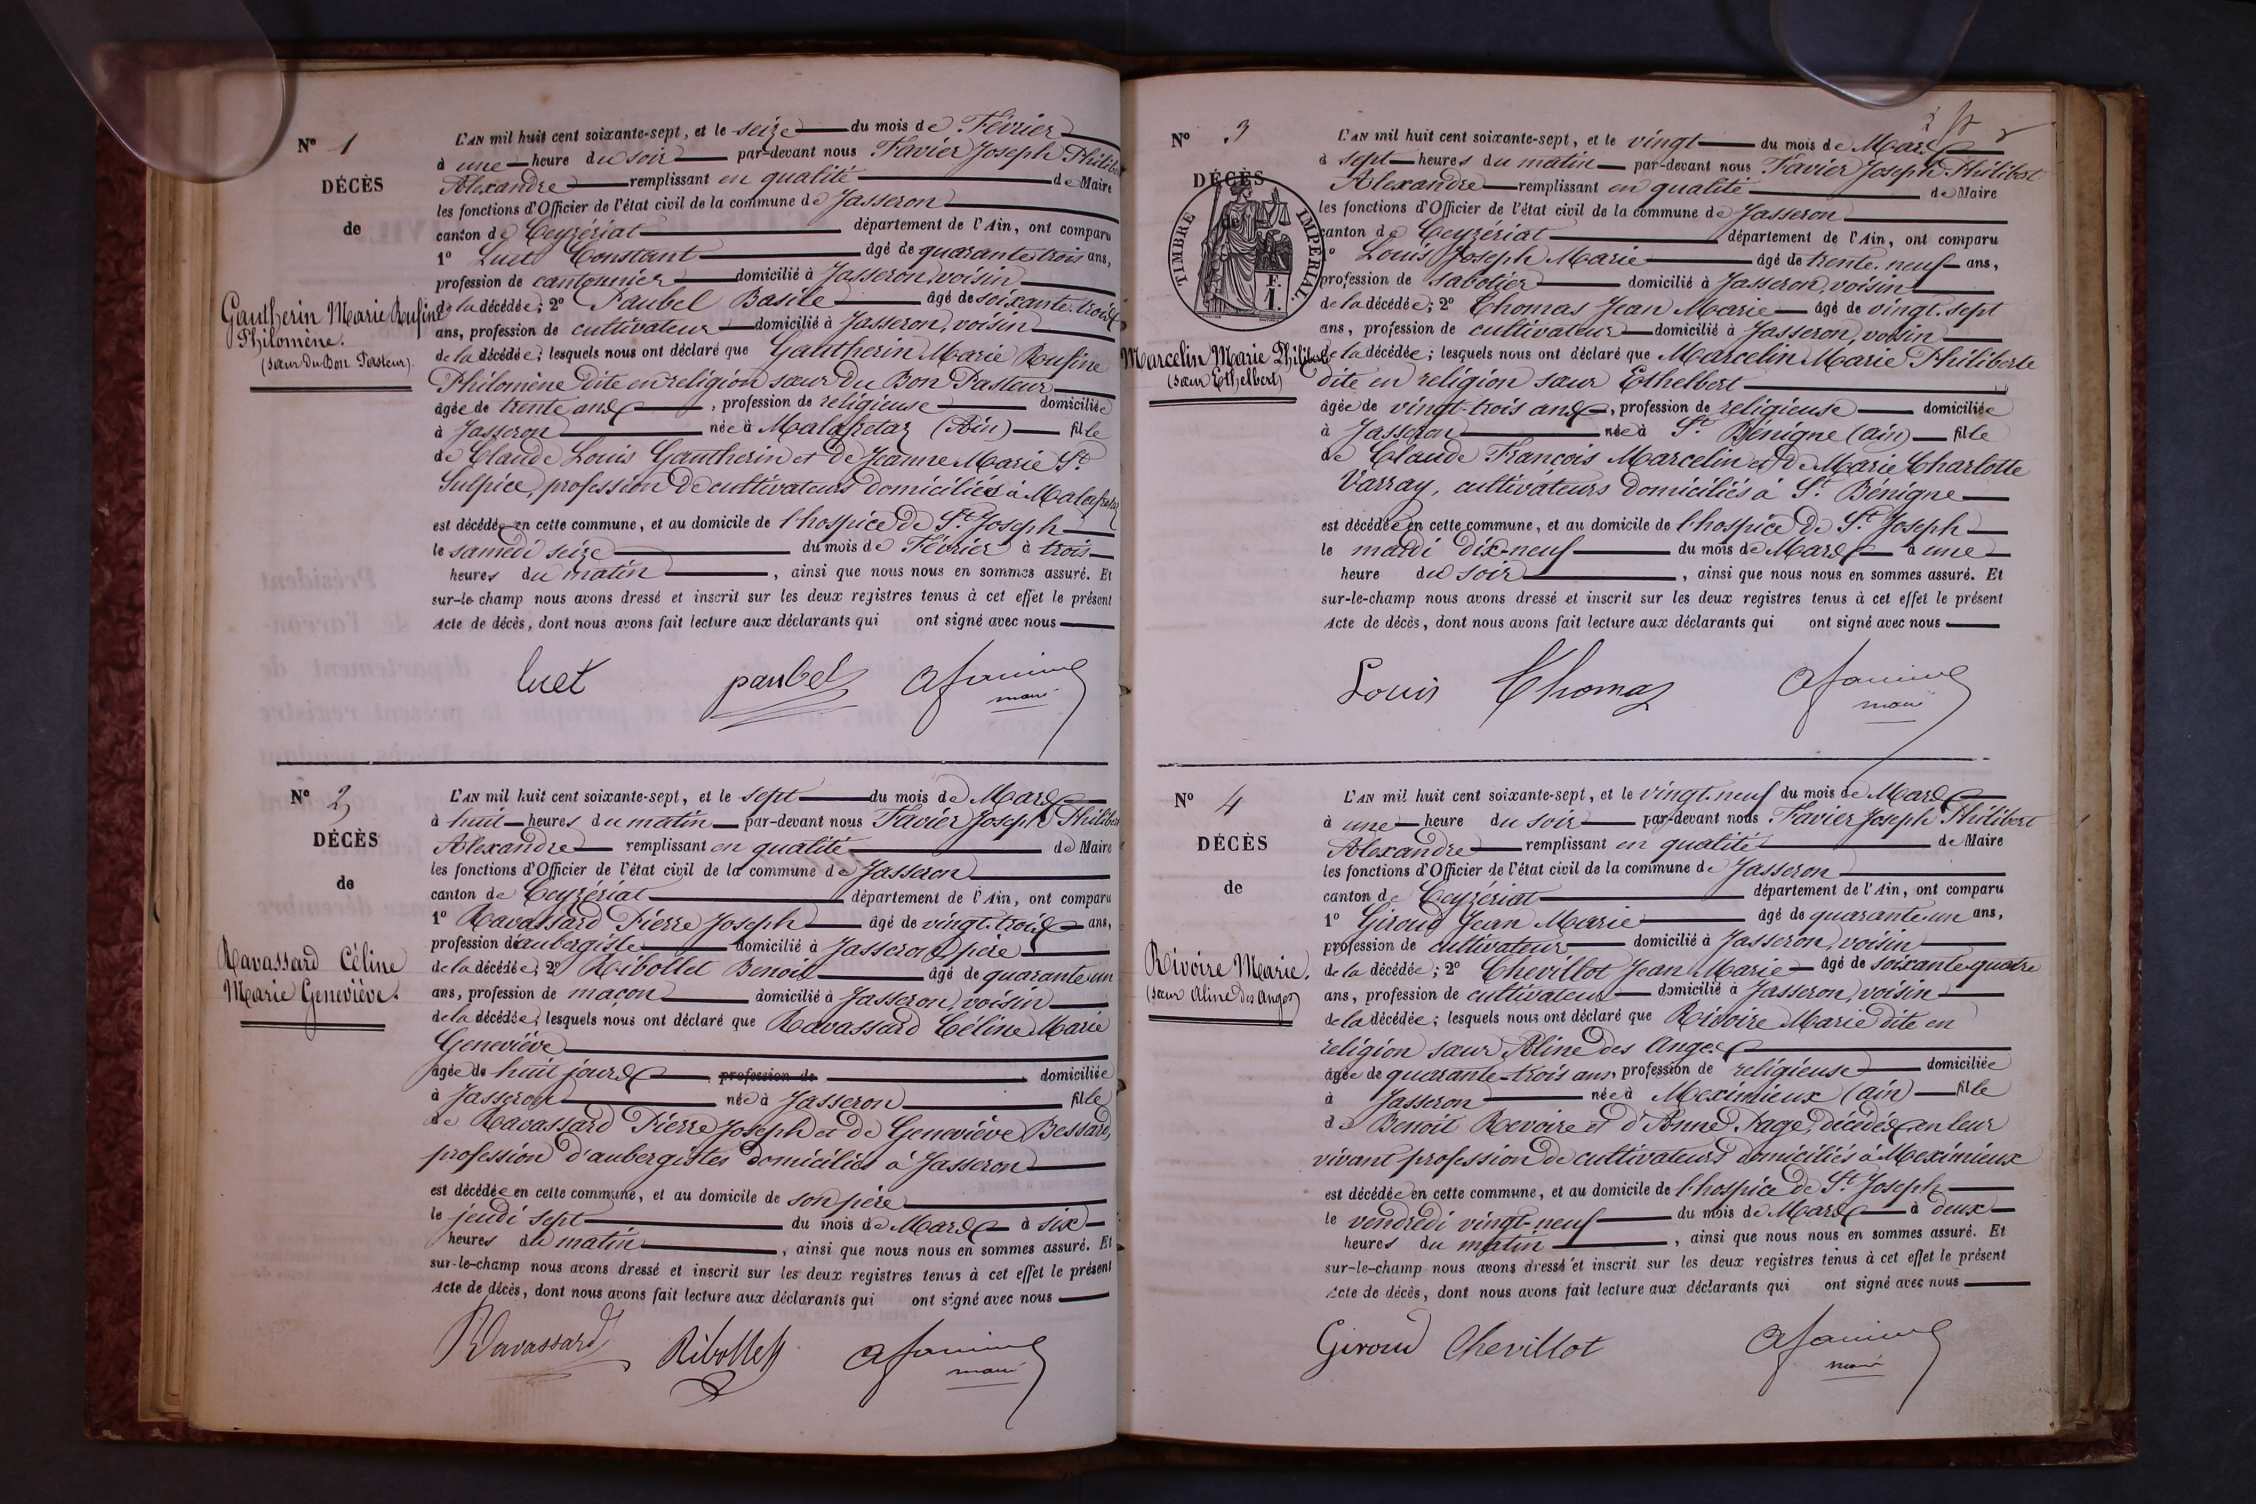 Nº 1
DÉCÈS
de
Gautherin Marie Rufine
Philomène.
(sœur du Bon Pasteur).
L'AN mil huit cent soixante-sept, et le seize du mois de Février
à une heure du soir par-devant nous Favier Joseph Philibert
Alexandre remplissant en qualité de Maire
les fonctions d'Officier de l'état civil de la commune de Jasseron
canton de Ceyzériat département de l'Ain, ont comparu
1º Luet Constant âgé de quarante trois ans,
profession de cantonnier domicilié à Jasseron, voisin
de la décédée; 2º Paubel Basile âgé de soixante-trois
ans, profession de cultivateur domicilié à Jasseron, voisin
de la décédée; lesquels nous ont déclaré que Gautherin Marie Rufine
Philomène dite en religion sœur du Bon Pasteur
âgée de trente ans, profession de religieuse domiciliée
à Jasseron née à Malafretaz (Ain) fille
de Claude Louis Gautherin et de Jeanne Marie St
Sulpice, profession de cultivateurs domiciliés à Malafretaz
est décédée en cette commune, et au domicile de l'hospice de St Joseph
le samedi seize du mois de Février à trois
heures du matin, ainsi que nous nous en sommes assuré. Et
sur-le-champ nous avons dressé et inscrit sur les deux registres tenus à cet effet le présent
Acte de décès, dont nous avons fait lecture aux déclarants qui ont signé avec nous
luet paubel
maire
Nº 2
DÉCÈS
de
Ravassard Céline
Marie Geneviève.
L'AN mil huit cent soixante-sept, et le sept du mois de Mars
à huit heures du matin par-devant nous Favier Joseph Philibert
Alexandre remplissant en qualité de Maire
les fonctions d'Officier de l'état civil de la commune de Jasseron
canton de Ceyzériat département de l'Ain, ont comparu
1º Ravassard Pierre Joseph âgé de vingt-trois ans,
profession d'aubergiste domicilié à Jasseron père
de la décédée; 2º Ribollet Benoit âgé de quarante un
ans, profession de maçon domicilié à Jasseron, voisin
de la décédée; lesquels nous ont déclaré que Ravassard Céline Marie
Geneviève
âgée de huit jours, profession de domiciliée
à Jasseron née à Jasseron fille
de Ravassard Pierre Joseph et de Geneviève Bessard,
profession d'aubergistes domiciliés à Jasseron
est décédée en cette commune, et au domicile de son père
le jeudi sept du mois de Mars à six
heures du matin, ainsi que nous nous en sommes assuré. Et
sur-le-champ nous avons dressé et inscrit sur les deux registres tenus à cet effet le présent
Acte de décès, dont nous avons fait lecture aux déclarants qui ont signé avec nous
Ravassard Ribollet
maire
Nº 3
DÉCÈS
de
TIMBRE IMPÉRIAL.
F.
1.
Marcelin Marie Philiberte
(sœur Ethelbert)
L'AN mil huit cent soixante-sept, et le vingt du mois de Mars
à sept heures du matin par-devant nous Favier Joseph Philibert
Alexandre remplissant en qualité de Maire
les fonctions d'Officier de l'état civil de la commune de Jasseron
canton de Ceyzériat département de l'Ain, ont comparu
1º Louis Joseph Marie âgé de trente-neuf ans,
profession de sabotier domicilié à Jasseron, voisin
de la décédée; 2º Thomas Jean Marie âgé de vingt-sept
ans, profession de cultivateur domicilié à Jasseron, voisin
de la décédée; lesquels nous ont déclaré que Marcelin Marie Philiberte
dite en religion sœur Ethelbert
âgée de vingt-trois ans, profession de religieuse domiciliée
à Jasseron née à St Bénigne (ain) fille
de Claude François Marcelin et de Marie Charlotte
Varray, cultivateurs domiciliés à St Bénigne
est décédée en cette commune, et au domicile de l'hospice de St Joseph
le mardi dix-neuf du mois de Mars à une
heure du soir, ainsi que nous nous en sommes assuré. Et
sur-le-champ nous avons dressé et inscrit sur les deux registres tenus à cet effet le présent
Acte de décès, dont nous avons fait lecture aux déclarants qui ont signé avec nous
Louis Thomas
maire
Nº 4
DÉCÈS
de
Rivoire Marie.
(sœur Aline des Anges)
L'AN mil huit cent soixante-sept, et le vingt-neuf du mois de Mars
à une heure du soir par-devant nous Favier Joseph Philibert
Alexandre remplissant en qualité de Maire
les fonctions d'Officier de l'état civil de la commune de Jasseron
canton de Ceyzériat département de l'Ain, ont comparu
1º Giroud Jean Marie âgé de quarante-un ans,
profession de cultivateur domicilié à Jasseron, voisin
de la décédée; 2º Chevillot Jean Marie âgé de soixante-quatre
ans, profession de cultivateur domicilié à Jasseron, voisin
de la décédée; lesquels nous ont déclaré que Rivoire Marie dite en
religion sœur Aline des Anges
âgée de quarante-trois ans, profession de religieuse domiciliée
à Jasseron née à Meximieux (ain) fille
de Benoit Revoire et d'Anne Page, décédés en leur
vivant profession de cultivateurs domiciliés à Meximieux
est décédée en cette commune, et au domicile de l'hospice de St Joseph
le vendredi vingt-neuf du mois de Mars à deux
heures du matin, ainsi que nous nous en sommes assuré. Et
sur-le-champ nous avons dressé et inscrit sur les deux registres tenus à cet effet le présent
Acte de décès, dont nous avons fait lecture aux déclarants qui ont signé avec nous
Giroud Chevillot
maire